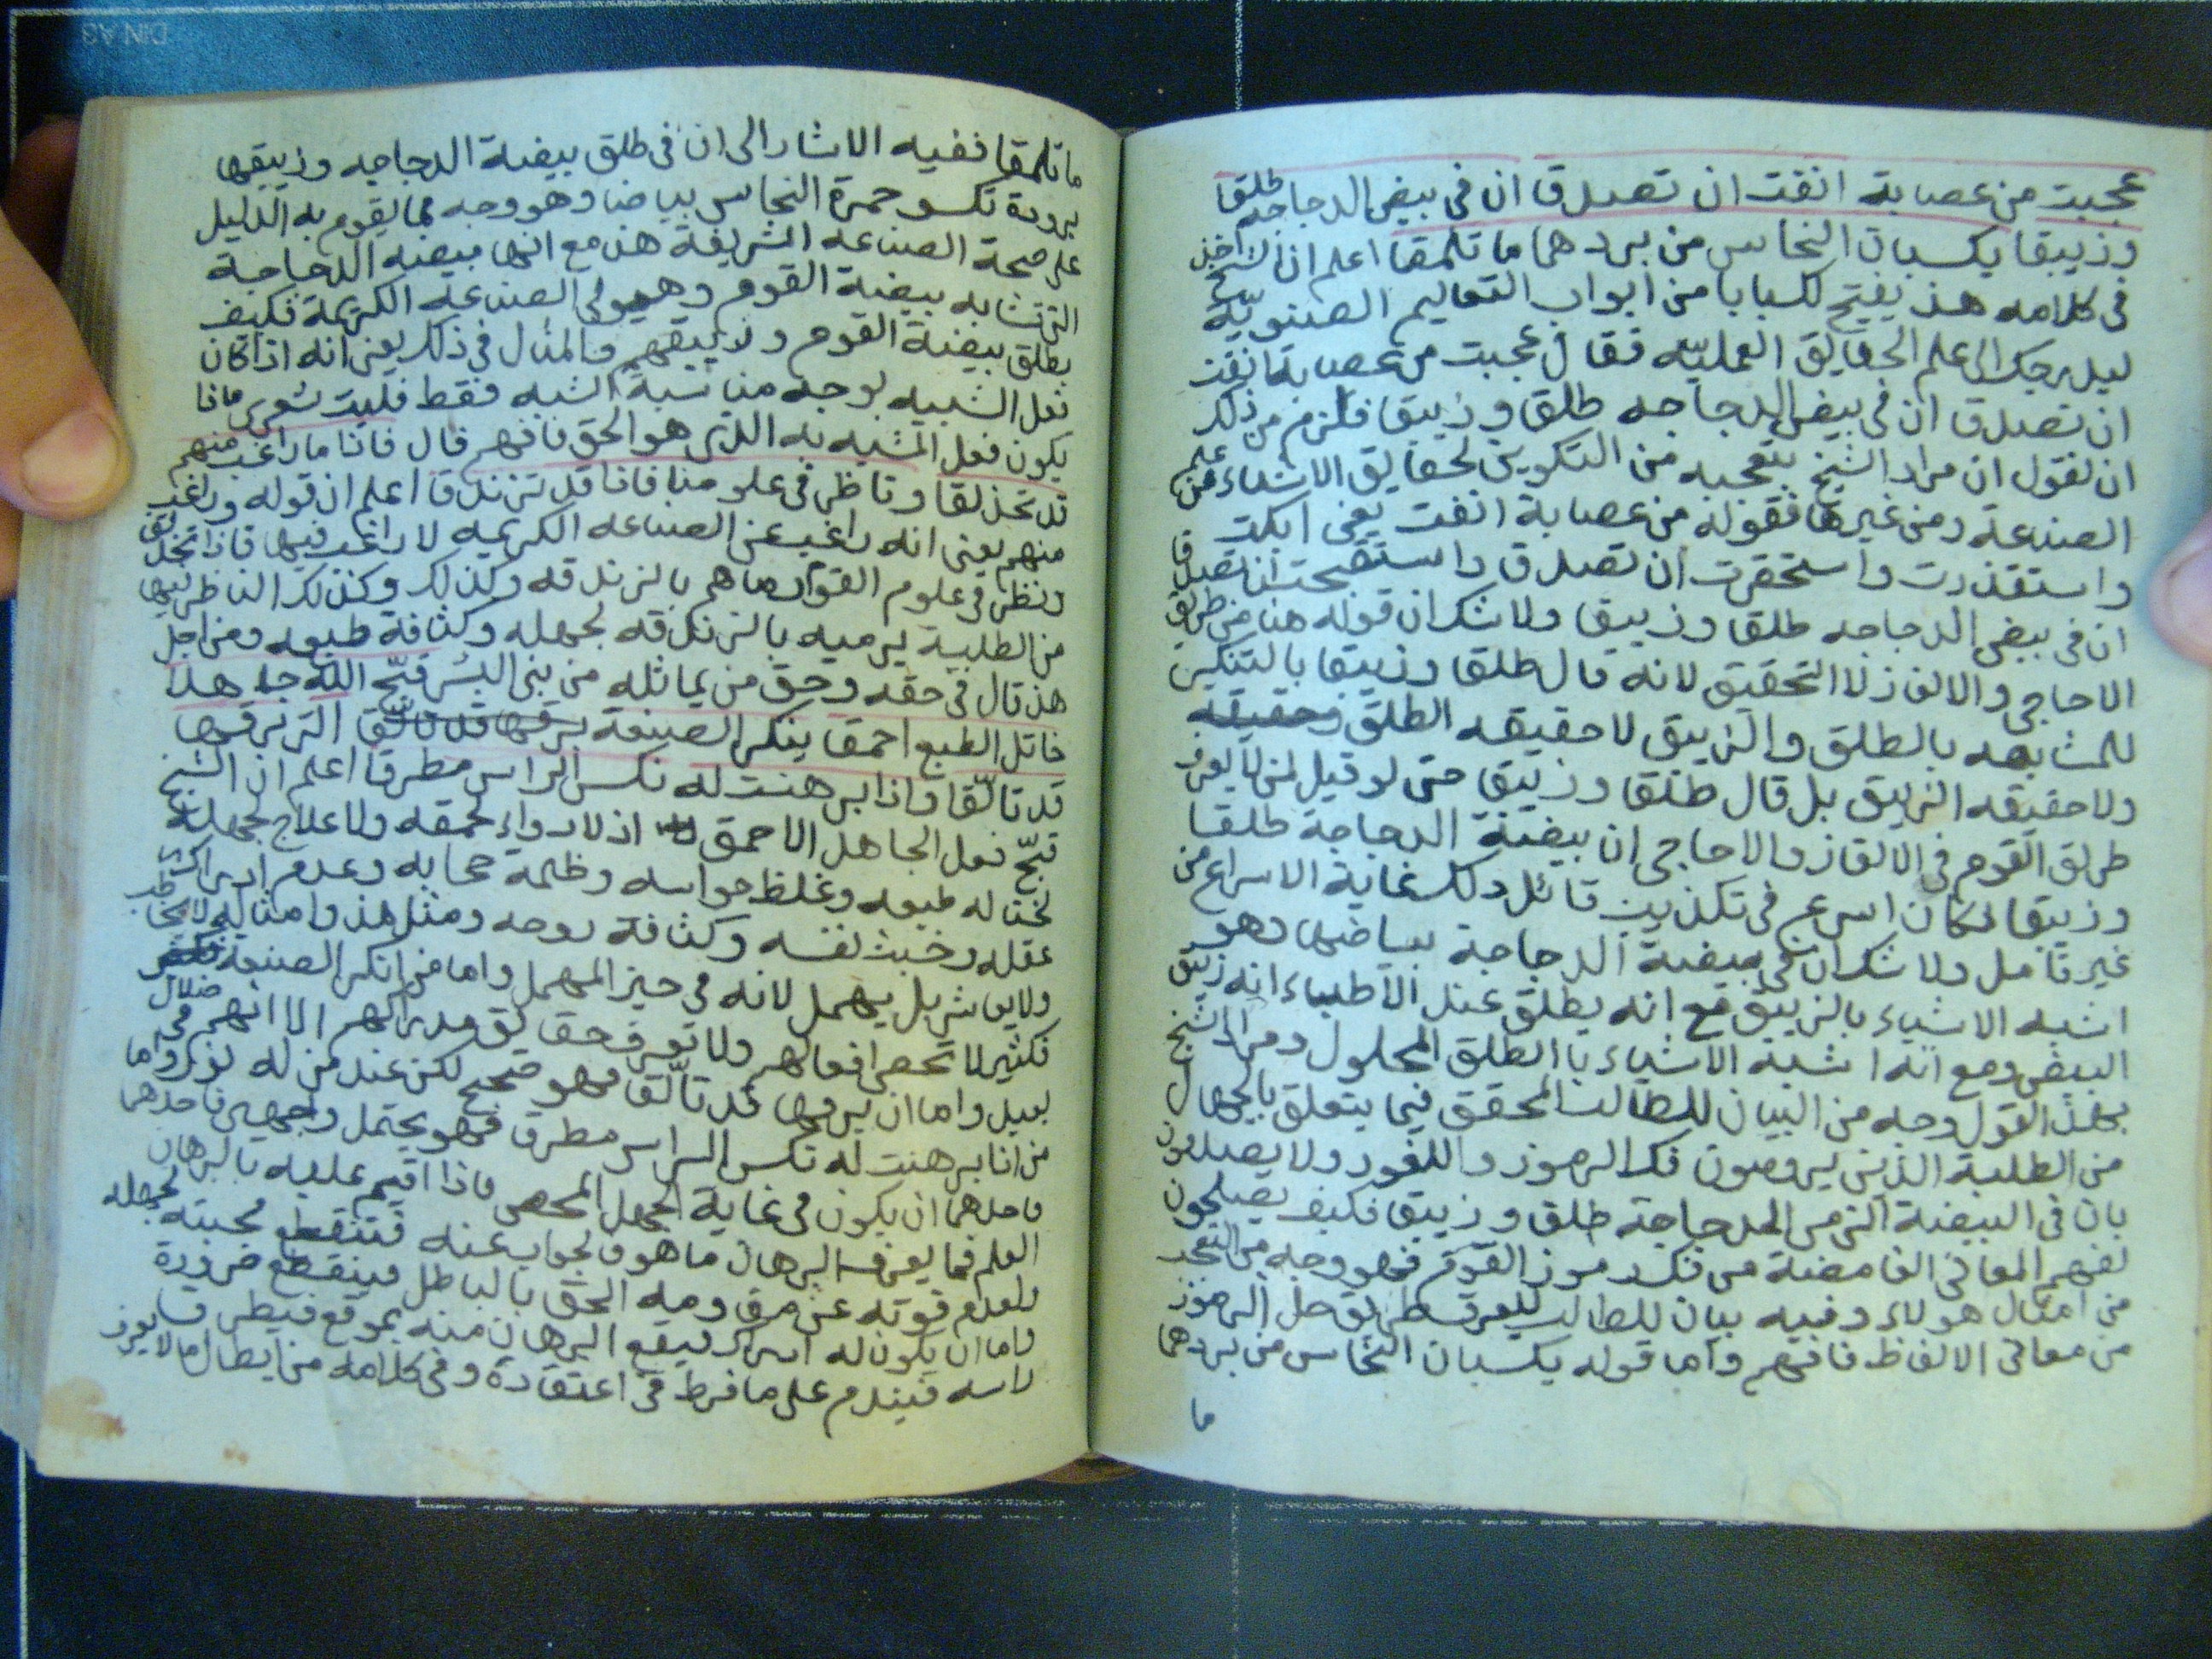 عجبت من عصابة انفت ان تصدق ان في بيض الدجاجه طلقا
وزيبقا يكسبان النحاس من بردهما ما تلمقا اعلم ان الشيخ اخذ
في كلامه هذ يفتح لك بابا من ابواب التعاليم الصنوية
ليدرجك الى علم الحقايق العمليه فقال عجبت من عصابة انفت
ان تصدق ان في بيض الدجاجه طلقا وزيبقا فلزم من ذلك
ان نقول ان مراد الشيخ بتعجبه من التكوين لحقايق الاشياء من علم
الصنعة ومن غيرها فقوله من عصابة انفت يعنى ابكت
واستقذرت واستحقرت ان تصدق واستقبحت ان تصدقا
ان في بيض الدجاجه طلقا وزيبقا ولا شك ان قوله هنا من طريق
الاحاجى والالغاز لا التحقيق لانه قال طلقا وزيبقا بالتنكير
للمشابهه بالطلق والزيبق لا حقيقه الطلق وحقيقه
ولا حقيقه الزيبق بل قال طلقا وزيبقا حتى لو قيل لمن لا يعرف
طريق القوم في الالغاز والاحاجى ان بيضة الدجاجة طلقا
وزيبقا لكان اسرع في تكذيب قائل ذلك غاية الاسراع من
غير تامل ولا شك ان في بيضة الدجاجة بياضها وهو
اشبه الاشياء بالزيبق مع انه يطلق عند الاطباء انه زيبق
البيض ومع انه اشبه الاشياء باالطلق المحلول ومراد الشيخ
بهذا القول وجه من البيان للطالب المحقق فيما يتعلق بالجهال
من الطلبة الذين يرومون فك الرموز واللغوز ولا يصدقون
بان في البيضة التي من الدجاجة طلق وزيبقا فكيف يصلحون
لفهم المعاني الغامضة من فك رموز القوم فهو وجه من التعجب
من امثال هولاء وفيه بيان للطالب ليعرف طريق حل الرموز
من معاني الالفاظ فافهم واما قوله يكسبان النحاس من بردهما
ما
ما تلمقا ففيه الاشار الى ان في طلق بيضة الدجاجه وزيبقها
برودة تكسو حمرة النحاس بياضا وهو وجه مما يقوم به الدليل
على صحة الصناعه الشريفة هذ مع انها بيضه الدجاجة
التي تشابه بيضة القوم وهيولى الصناعة الكريمة فكيف
بطلق بيضة القوم وزيبقهم والمثال في ذلك يعنى انه اذا كان
فعل الشبيه بوجه مناسبة الشبه فقط فليت شعرى ماذا
يكون فعل المشبه به الذى هو الحق فافهم قال فاذا ما راغب منهم
قد تحذلقا وناظر في علومنا فاذا قد تزندقا اعلم ان قوله وراغب
منهم يعنى انه راغب عن الصناعه الكريمه لا راغب فيها فاذا تحذلق
ونظر في علوم القوم رماهم بالزندقه وكذلك وكذلك الناظر فيها
من الطلبة يرميه بالزندقه لجهله وكثافة طبعه ومن اجل
هذ قال في حقه وحق من يماثله من بنى البشر قبّح الله جاهلا
خاتل الطبع احمقا ينكر الصنعة التي نرقها
قد تالّقا واذا برهنت له نكس الراس مطرقا اعلم ان الشيخ
قبّح فعل الجاهل الاحمق اذ لا دواء لحمقه ولا علاج لجهله
لختاله طبعه وغلظ حواسه وظلمة حجابه وعدم ادراك
عقله وخبث نفسه وكثافة روحه ومثل هذ وامثاله لا يخاطب
ولا يعاشر بل يهمل لانه في حيز المهمل واما من انكر الصنعة
فكثير لا تحصى افعالهم ولا تعرف حقايق مداركهم الا انهم في ضلال
بعيد واما ان برقها قد تالّقا فهو صحيح لكن عند من له نور واما
من اذا برهنت له نكس الراس مطرقا فهو يحتمل وجهين احدهما
فاحدهما ان يكون في غاية الجهل المحض فاذا اقيم عليه بالبرهان
العلم فما يعرف البرهان ما هو فالجواب عنه فتنقطع حجته لجهله
ولعدم قوته عن مقاومه الحق بالباطل فينقطع ضرورة
واما ان يكون له ادراك فيقع البرهان منه بموقع فيطرق
راسه فيندم على ما فرط في اعتقاده وفي كلامه من ابطال ما لا يعرف